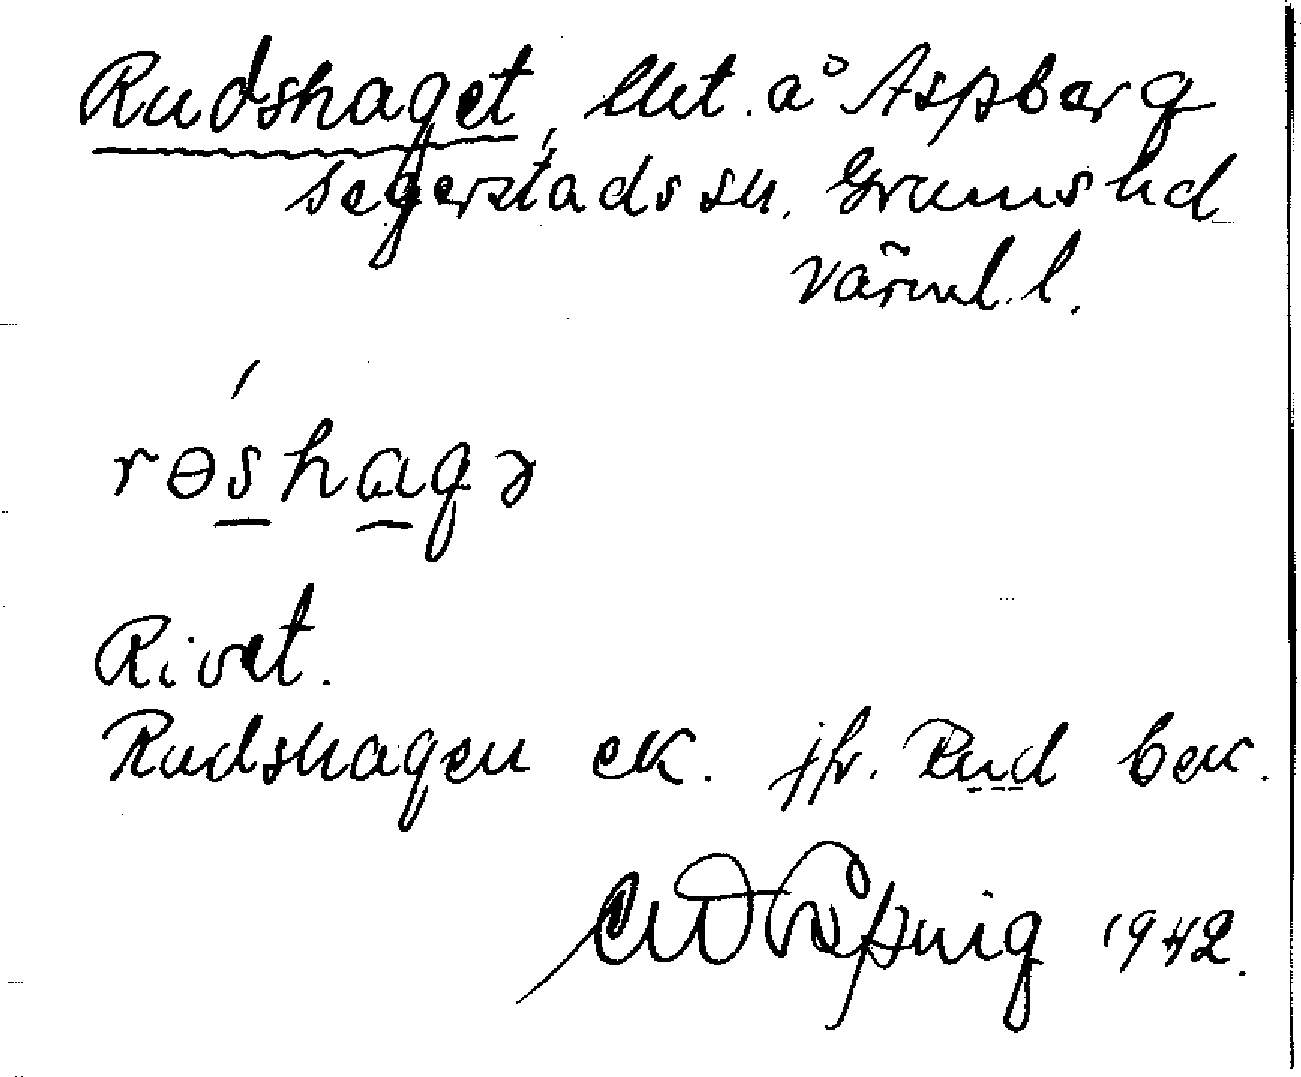 Rudshaget, lht. å Aspberg
Segerstads sn. Grums hd
Värml. l.
rɵshagə
Rivet.
Rudshagen ek. jfr. Rud bek.
1942.